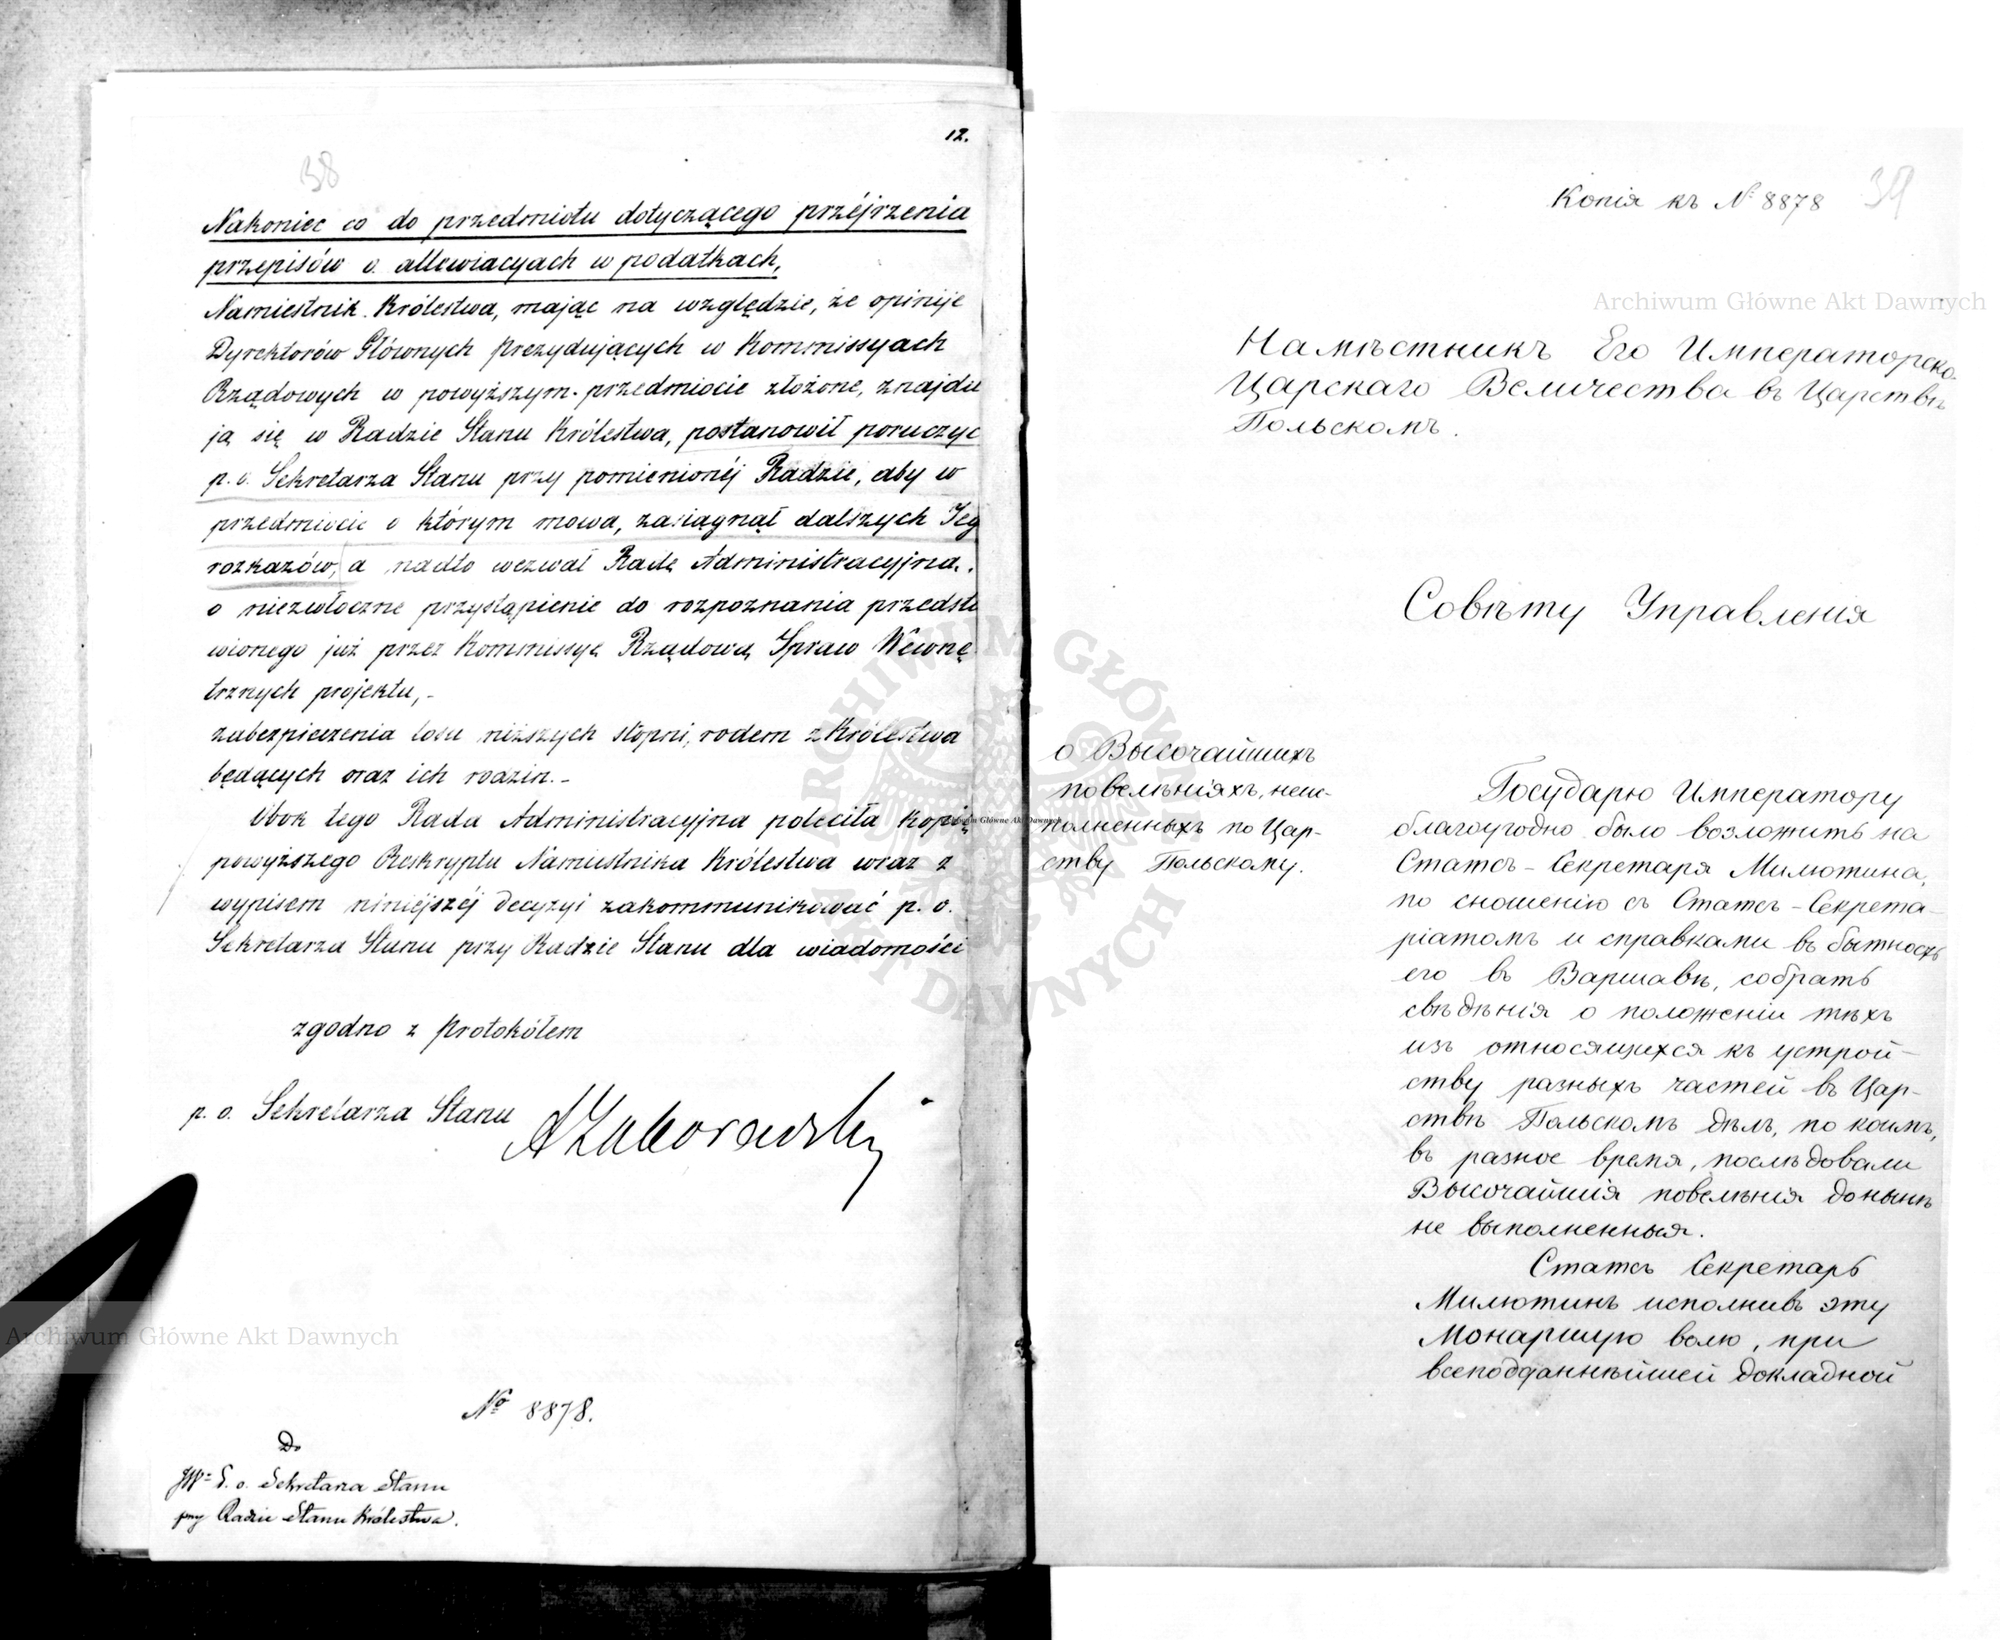 12.
38
Nakoniec co do przedmiotu dotyczącego przéjrzenia
przepisów o allewiacyach w podatkach,
Namiestnik Królestwa, mając na względzie, że opinije
Dyrektorów Głównych Prezydujących w Kommissyach
Rządowych w powyższym przedmiocie złożone, znajdu
ją się w Radzie Stanu Królestwa, postanowił poruczyć
p. o. Sekretarza Stanu przy pomienionéj Radzie, aby w
przedmiocie o którym mowa, zasiągnął dalszych Jeg
rozkazów, a nadto wezwał Radę Administracyjną.
o niezwłoczne przystąpienie do rozpoznania przedsta
wionego już przez Kommissyę Rządową Spraw Wewnę
trznych projektu,-
zabezpieczenia losu niższych stopni, rodem z Królestwa
będących oraz ich rodzin.-
Obok tego Rada Administracyjna poleciła Kopię
powyższego Reskryptu Namiestnika Królestwa wraz z
wypisem niniejszéj decyzyi zakommunikować p. o.
Sekretarza Stanu przy Radzie Stanu dla wiadomości
zgodno z Protokółem
p. o. Sekretarza Stanu AZaborowski
No 8878.
Do
JW= P. o. Sekretarza Stanu
przy Radzie Stanu Królestwa.
Копія къ № 8878
39
Намѣстникъ Его Императорско-
Царскаго Величества въ Царствѣ
Польскомъ.
Совѣту Управленія
о Высочайшихъ
повелѣніяхъ, неис-
полненныхъ по Цар-
ству Польскому.
Государю Императору
благоугодно было возложить на
Статсъ-Секретаря Милютина,
по сношенію съ Статсъ-Секрета-
ріатомъ и справками въ бытность
его въ Варшавѣ, собрать
свѣдѣнія о положеніи тѣхъ
изъ относящихся къ устрой-
ству разныхъ частей въ Цар-
ствѣ Польскомъ дѣлъ, по коимъ,
въ разное время, послѣдовали
Высочайшія повелѣнія донынѣ
не выполненныя.
Статсъ Секретарь
Милютинъ исполнивъ эту
Монаршую волю, при
всеподданнѣйшей докладной
Archiwum Główne Akt Dawnych
Archiwum Główne Akt Dawnych
Archiwum Główne Akt Dawnych
ARCHIWUM GŁÓWNE AKT DAWNYCH